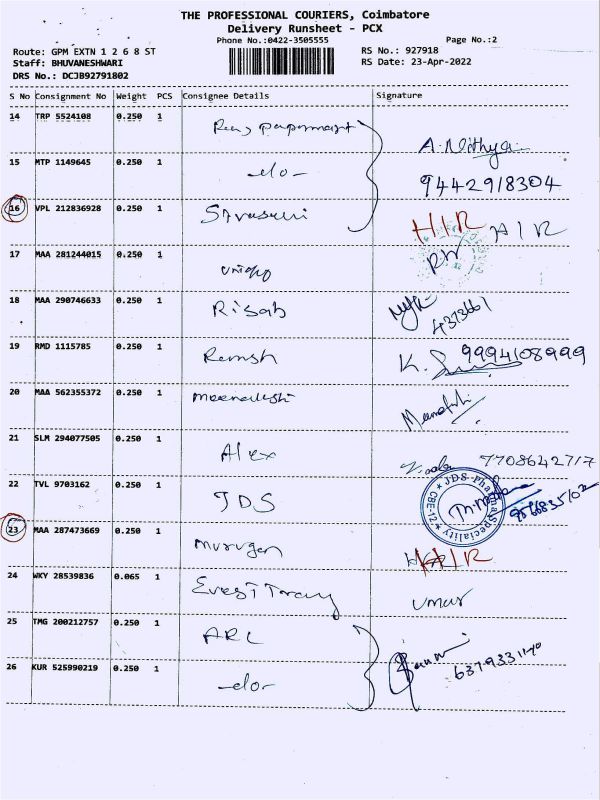 THE PROFESSIONAL COURIERS, Coimbatore
Delivery Runsheet - PCX
Phone No.:0422-3505555
Page No.:2
Route: GPM EXTN 1 2 6 8 ST
RS No.: 927918
Staff: BHUVANESHWARI
RS Date: 23-Apr-2022
DRS No.: DCJB92791802
S No Consignment No Weight PCS Consignee Details Signature
14 TRP 5524108 0.250 1
A. Nithya
15 MTP 1149645 0.250 1 -do-
9442918304
16 VPL 212836928 0.250 1
HIR HIR
17 MAA 281244015 0.250 1 unique
18 MAA 290746633 0.250 1 Risab
4373661
19 RMD 1115785 0.250 1 Ramsh K. 9994108999
20 MAA 562355372 0.250 1 meenakshi
21 SLM 294077505 0.250 1 Alex 7708642717
22 TVL 9703162 0.250 1 JDS
JDS-Pharma Speciality CBE-12
23 MAA 287473669 0.250 1 murugan HIR
24 WKY 28539836 0.065 1 umar
25 TMG 200212757 0.250 1 ARL
26 KUR 525990219 0.250 1 -do-